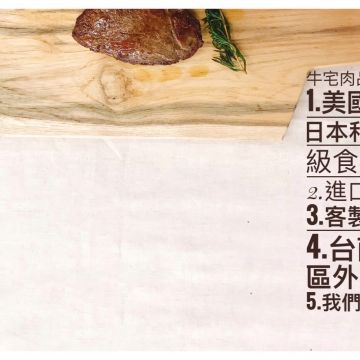 牛宅肉品
1.美國
日本和
級食
2.進口
3.客製
4.台南
區外
5.我們